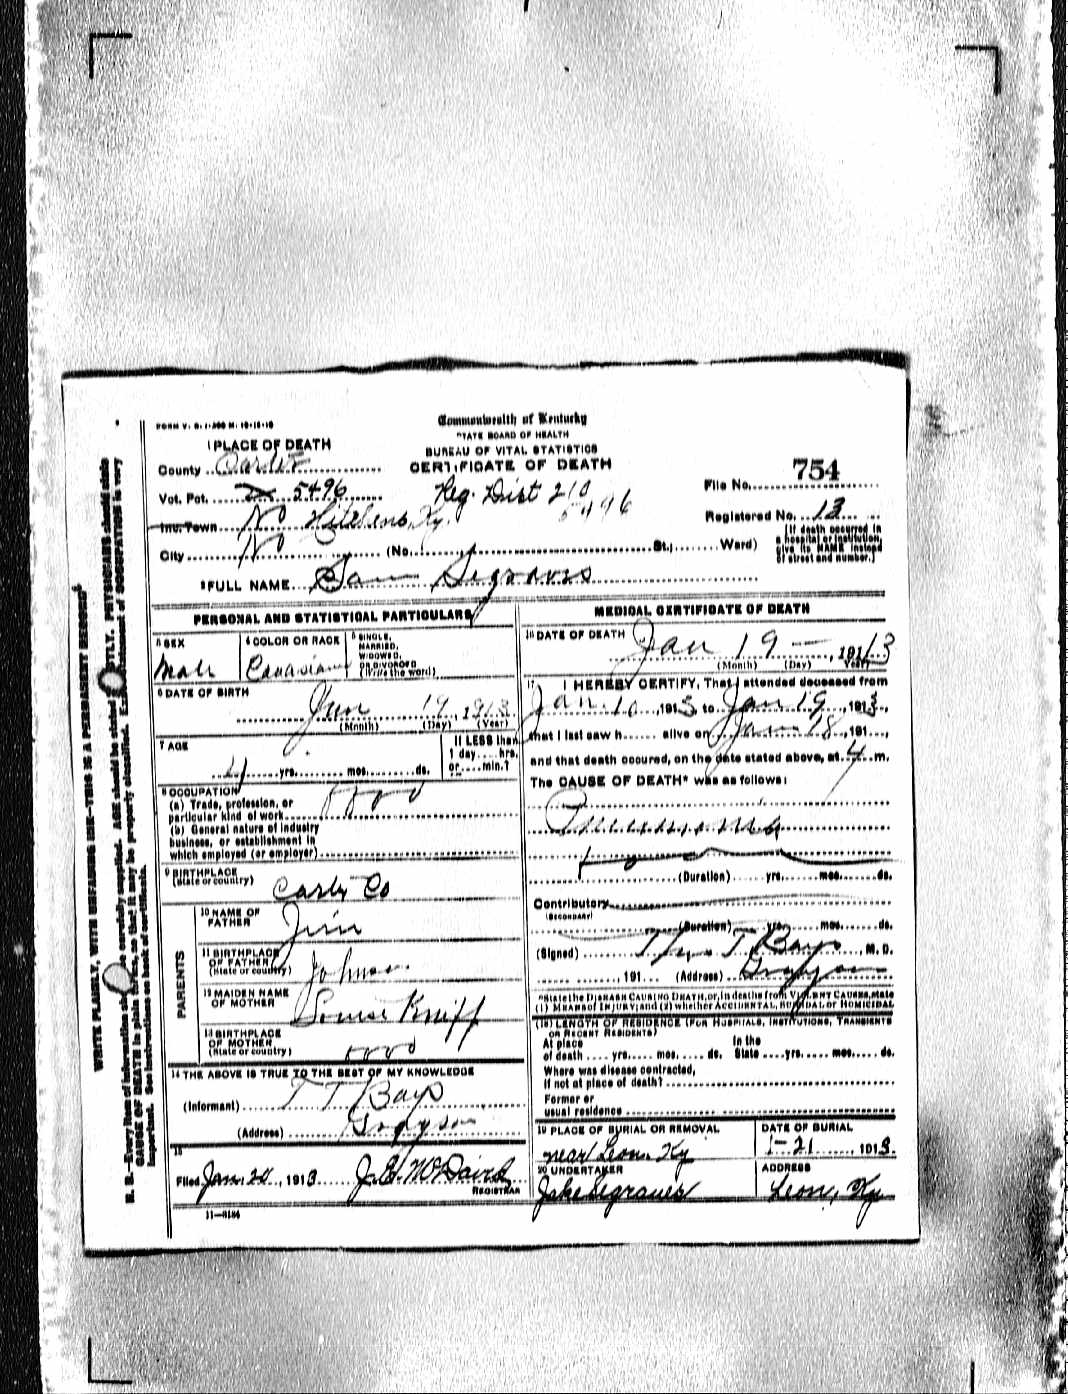 FORM V. S. 1
Commonwealth of Kentucky
STATE BOARD OF HEALTH
BUREAU OF VITAL STATISTICS
CERTIFICATE OF DEATH
1 PLACE OF DEATH
County Carter
Vot. Pct. 5496
Reg. Dist 210
5496
File No. 754
Registered No. 13
Inc. Town No Hitchens, Ky.
City No (No. St.; Ward)
(If death occurred in a hospital or institution, give its NAME instead of street and number.)
2 FULL NAME Sam Segraves
PERSONAL AND STATISTICAL PARTICULARS
3 SEX
Male
4 COLOR OR RACE
5 SINGLE, MARRIED, WIDOWED, OR DIVORCED (Write the word)
6 DATE OF BIRTH
19, 1913
(Month) (Day) (Year)
7 AGE
yrs. mos. ds.
If LESS than 1 day hrs. or min.?
8 OCCUPATION
(a) Trade, profession, or particular kind of work
(b) General nature of industry business, or establishment in which employed (or employer)
9 BIRTHPLACE
(State or country)
Carter Co
PARENTS
10 NAME OF FATHER
Jim
11 BIRTHPLACE OF FATHER
(State or country)
Johnson
12 MAIDEN NAME OF MOTHER
13 BIRTHPLACE OF MOTHER
(State or country)
14 THE ABOVE IS TRUE TO THE BEST OF MY KNOWLEDGE
(Informant) T T Bays
(Address) Grayson
15
Filed Jan. 20, 1913 J. W. McDavid
REGISTRAR
11-3184
MEDICAL CERTIFICATE OF DEATH
16 DATE OF DEATH Jan 19, 1913
(Month) (Day) Year
17 I HEREBY CERTIFY, That I attended deceased from
Jan. 10, 1913 to Jan 19 1913,
that I last saw h alive on Jan 18, 191,
and that death occured, on the date stated above, at 4 m.
The CAUSE OF DEATH* was as follows:
Pneumonia
(Duration) yrs. mos. ds.
Contributory
(SECONDARY)
(Duration) yrs. mos. ds.
(Signed) T. Bays, M. D.
, 191 (Address) Grayson
*State the DISEASE CAUSING DEATH, or, in deaths from VIOLENT CAUSES, state
(1) MEANS OF INJURY; and (2) whether ACCIDENTAL, SUICIDAL or HOMICIDAL
(18) LENGTH OF RESIDENCE (FOR HOSPITALS, INSTITUTIONS, TRANSIENTS OR RECENT RESIDENTS)
At place of death yrs. mos. ds. In the State yrs. mos. ds.
Where was disease contracted,
if not at place of death?
Former or
usual residence
19 PLACE OF BURIAL OR REMOVAL
near Leon, Ky
DATE OF BURIAL
1-21, 1913.
20 UNDERTAKER
Jake Segraves
ADDRESS
Leon, Ky
WRITE PLAINLY, WITH UNFADING INK—THIS IS A PERMANENT RECORD
N. B.—Every item of information should be carefully supplied. AGE should be stated EXACTLY. PHYSICIANS should state
CAUSE OF DEATH in plain terms, so that it may be properly classified. Exact statement of OCCUPATION is very
important. See instructions on back of certificate.